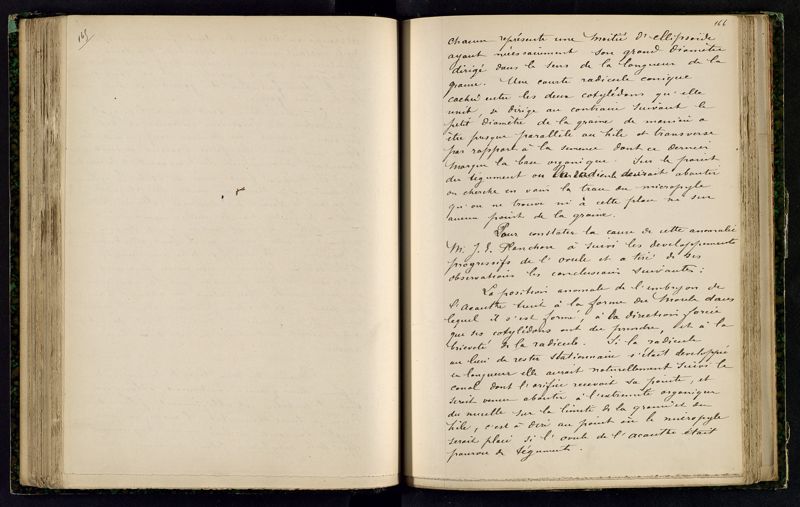 165
166
chacun représente une moitié d'ellipsoïde
ayant nécessairement son grand diamètre
dirigé dans le sens de la longueur de la
graine. Une courte radicule conique
cachée entre les deux cotylédons qu'elle
unit, se dirige au contraire suivant le
petit diamètre de la graine de manière a
être presque parallèle au hile et transverse
par rapport à la semence dont ce dernier
marque la base organique. Sur le point
du tégument ou la radicule devrait aboutir
on cherche en vain la trace du micropyle
qu'on ne trouve ni à cette place ni sur
aucun point de la graine.
Pour constater la cause de cette anomalie
Mr J. E. Planchon a suivi les developpements
progressifs de l'ovule et a tiré de ses
observations les conclusions suivantes :
La position anomale de l'embryon de
l'acanthe tient à la forme du moule dans
lequel il s'est formé, à la direction forcée
que ses cotylédons ont du prendre, et à la
brieveté de la radicule. Si la radicule
au lieu de rester stationnaire s'était developpée
en longueur elle aurait naturellement suivi le
canal dont l'orifice recevait sa pointe, et
serait venue aboutir à l'extremité organique
du nucelle sur la limite de la graine et du
hile, c'est à dire au point où le micropyle
serait placé si l'ovule de l'acanthe était
pourvu de téguments.